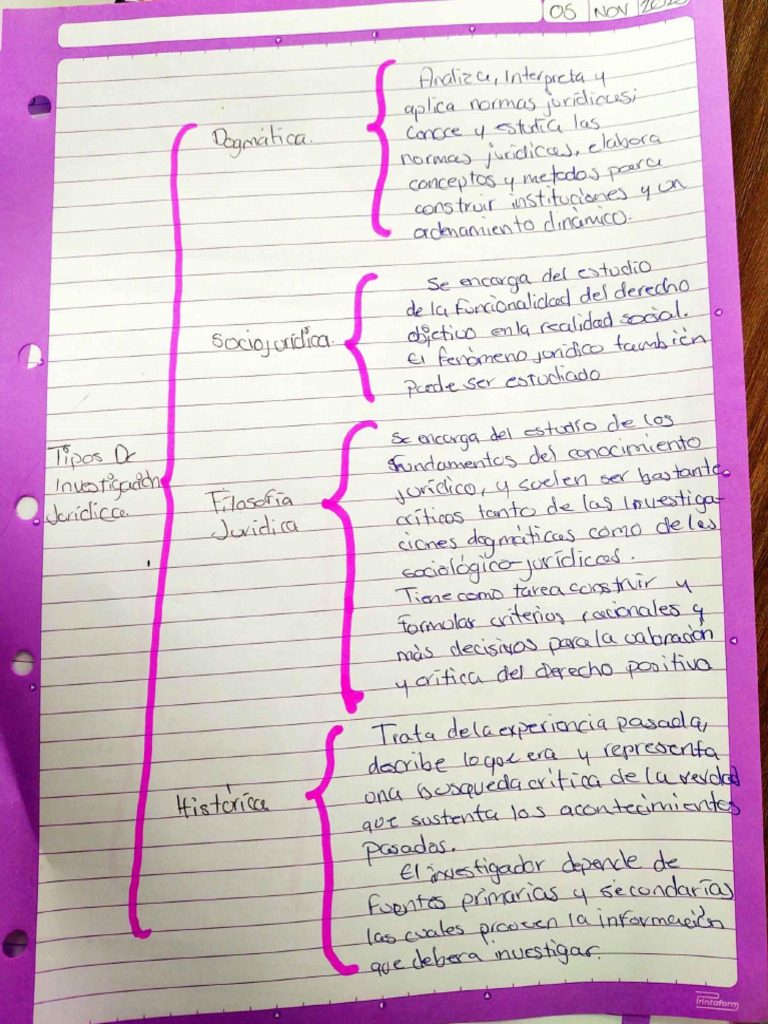 05 NOV
Tipos De
Investigación
Jurídica.
Dogmática.
Analiza, Interpreta y
aplica normas jurídicas;
conoce y estudia las
normas jurídicas, elabora
conceptos y metodos para
construir instituciones y un
ordenamiento dinámico.
Sociojurídica.
Se encarga del estudio
de la funcionalidad del derecho
objetivo en la realidad social.
El fenómeno jurídico también
puede ser estudiado
Filosofía
Jurídica
Se encarga del estudio de los
fundamentos del conocimiento
jurídico, y suelen ser bastante
críticos tanto de las Investiga-
ciones dogmáticas como de las
sociológico-jurídicas.
Tiene como tarea construir y
formular criterios racionales y
más decisivos para la valoración
y crítica del derecho positivo
Histórica
Trata de la experiencia pasada,
describe lo que era y representa
una busqueda critica de la verdad
que sustenta los acontecimientos
pasados.
El investigador depende de
fuentes primarias y secundarias
las cuales proveen la información
que debera investigar.
Printaform